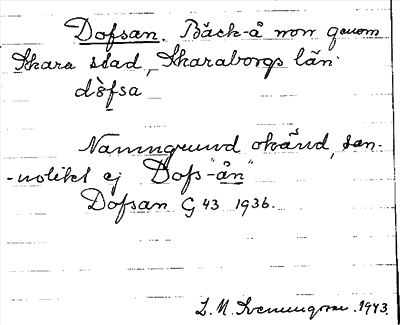 Dofsan. Bäck-å norr genom
Skara stad, Skaraborgs län.
dòfsa
Namngrund okänd, san-
-nolikt ej Dofs-"ån"
Dofsan G 43 1936.
L. M. Svenungsson. 1943.